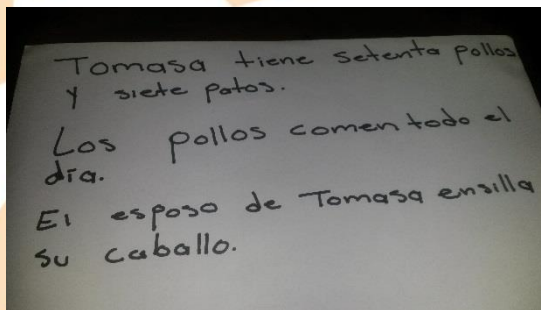 Tomasa tiene setenta pollos
y siete patos.
Los pollos comen todo el
día.
El esposo de Tomasa ensilla
su caballo.